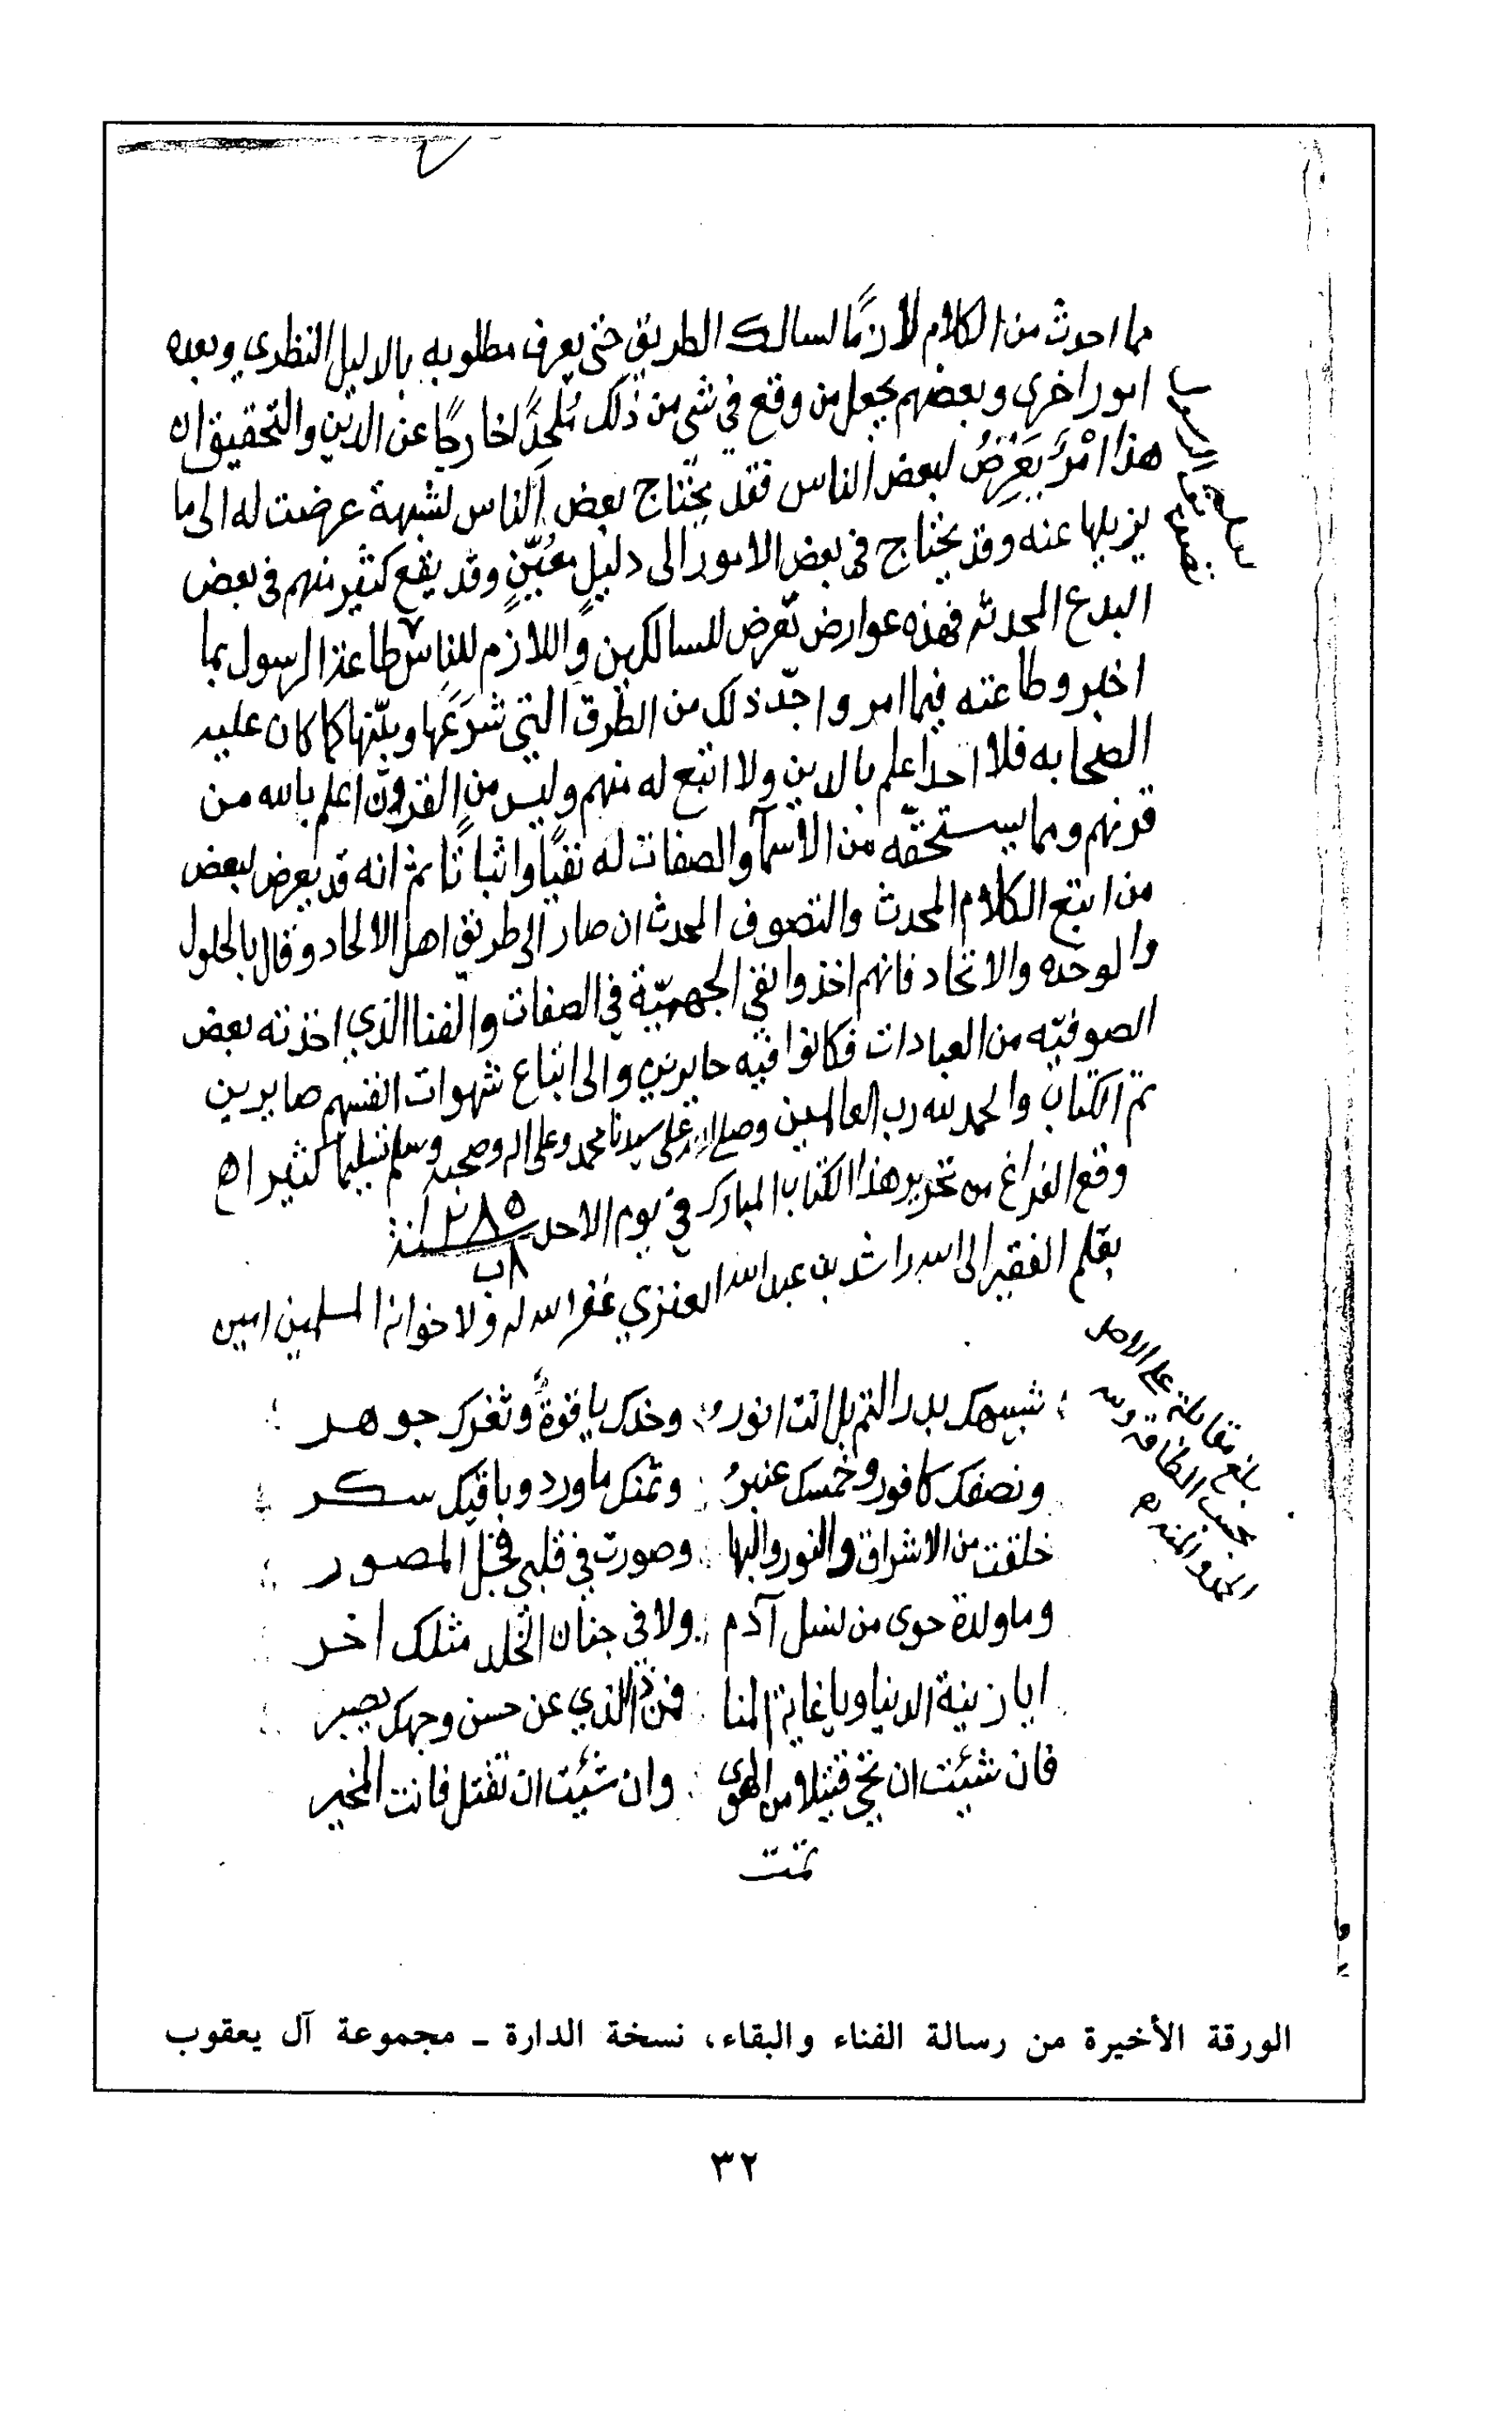 مما احدث من الكلام لازمًا لسالك الطريق حتى يعرف مطلوبه بالدليل النظري وبعده
امور اخرى وبعضهم يجعل من وقع في شي من ذلك مُلحدًا خارجًا عن الدين والتحقيق ان
هذا امْرٌ يَعْرِضُ لبعض الناس فقد يحتاج بعض الناس لشبهة عرضت له الى ما
يزيلها عنه وقد يحتاج في بعض الامور الى دليلٍ معُيّنٍ وقد يقع كثير منهم في بعض
البدع المحدثه فهذه عوارض تعرض للسالكين واللازم للناس طاعة الرسول بما
اخبر وطاعته فيما امر واخذ ذلك من الطرق التي شرَعَها وبيّنها كما كان عليه
الصحابه فلا احد اعلم بالدين ولا اتبع له منهم وليس من القرون اعلم بالله من
قرنهم وبما يستحقّه من الاسمآ والصفات له نفيًا واثباتًا ثم انه قد يعرض لبعض
من اتبع الكلام المحدث والتصوف المحدث ان صار الى طريق اهل الالحاد وقال بالحلول
والوحده والاتحاد فانهم اخذوا نفي الجهميّة في الصفات والفنا الذي اخذته بعض
الصوفيّه من العبادات فكانوا فيه حايرين والى اتباع شهوات انفسهم صايرين
تم الكتاب والحمد لله رب العالمين وصلى الله على سيدنا محمد وعلى اله وصحبه وسلم تسليما كثيرا اه
وقع الفراغ من تحرير هذا الكتاب المبارك في يوم الاحد ١٢٨٥ سنة
٨ ب
بقلم الفقير الى الله راشد بن عبد الله العنزي غفر الله له ولاخوانه المسلمين امين
بلغ مقابلة على الاصل
بحسب الطاقة ولله
الحمد والمنه اه
شبيهك بدر التم بل انت انور وخدك ياقوةٌ وثغرك جوهر
ونصفك كافور وخمسك عنبرُ وثمنك ماورد وباقيك سكر
خلقت من الاشراق والنور والبها وصورت في قلبي فجل المصور
وما ولدة حوى من نسل آدم ولا في جنان الخلد مثلك اخر
ايا زينة الدنيا ويا غاية المنا فمن ذا الذي عن حسن وجهك يصبر
فان شئت ان تحي قتيلا من الهوى وان شئت ان تقتل فانت المخير
تمت
الورقة الأخيرة من رسالة الفناء والبقاء، نسخة الدارة ـ مجموعة آل يعقوب
٣٢